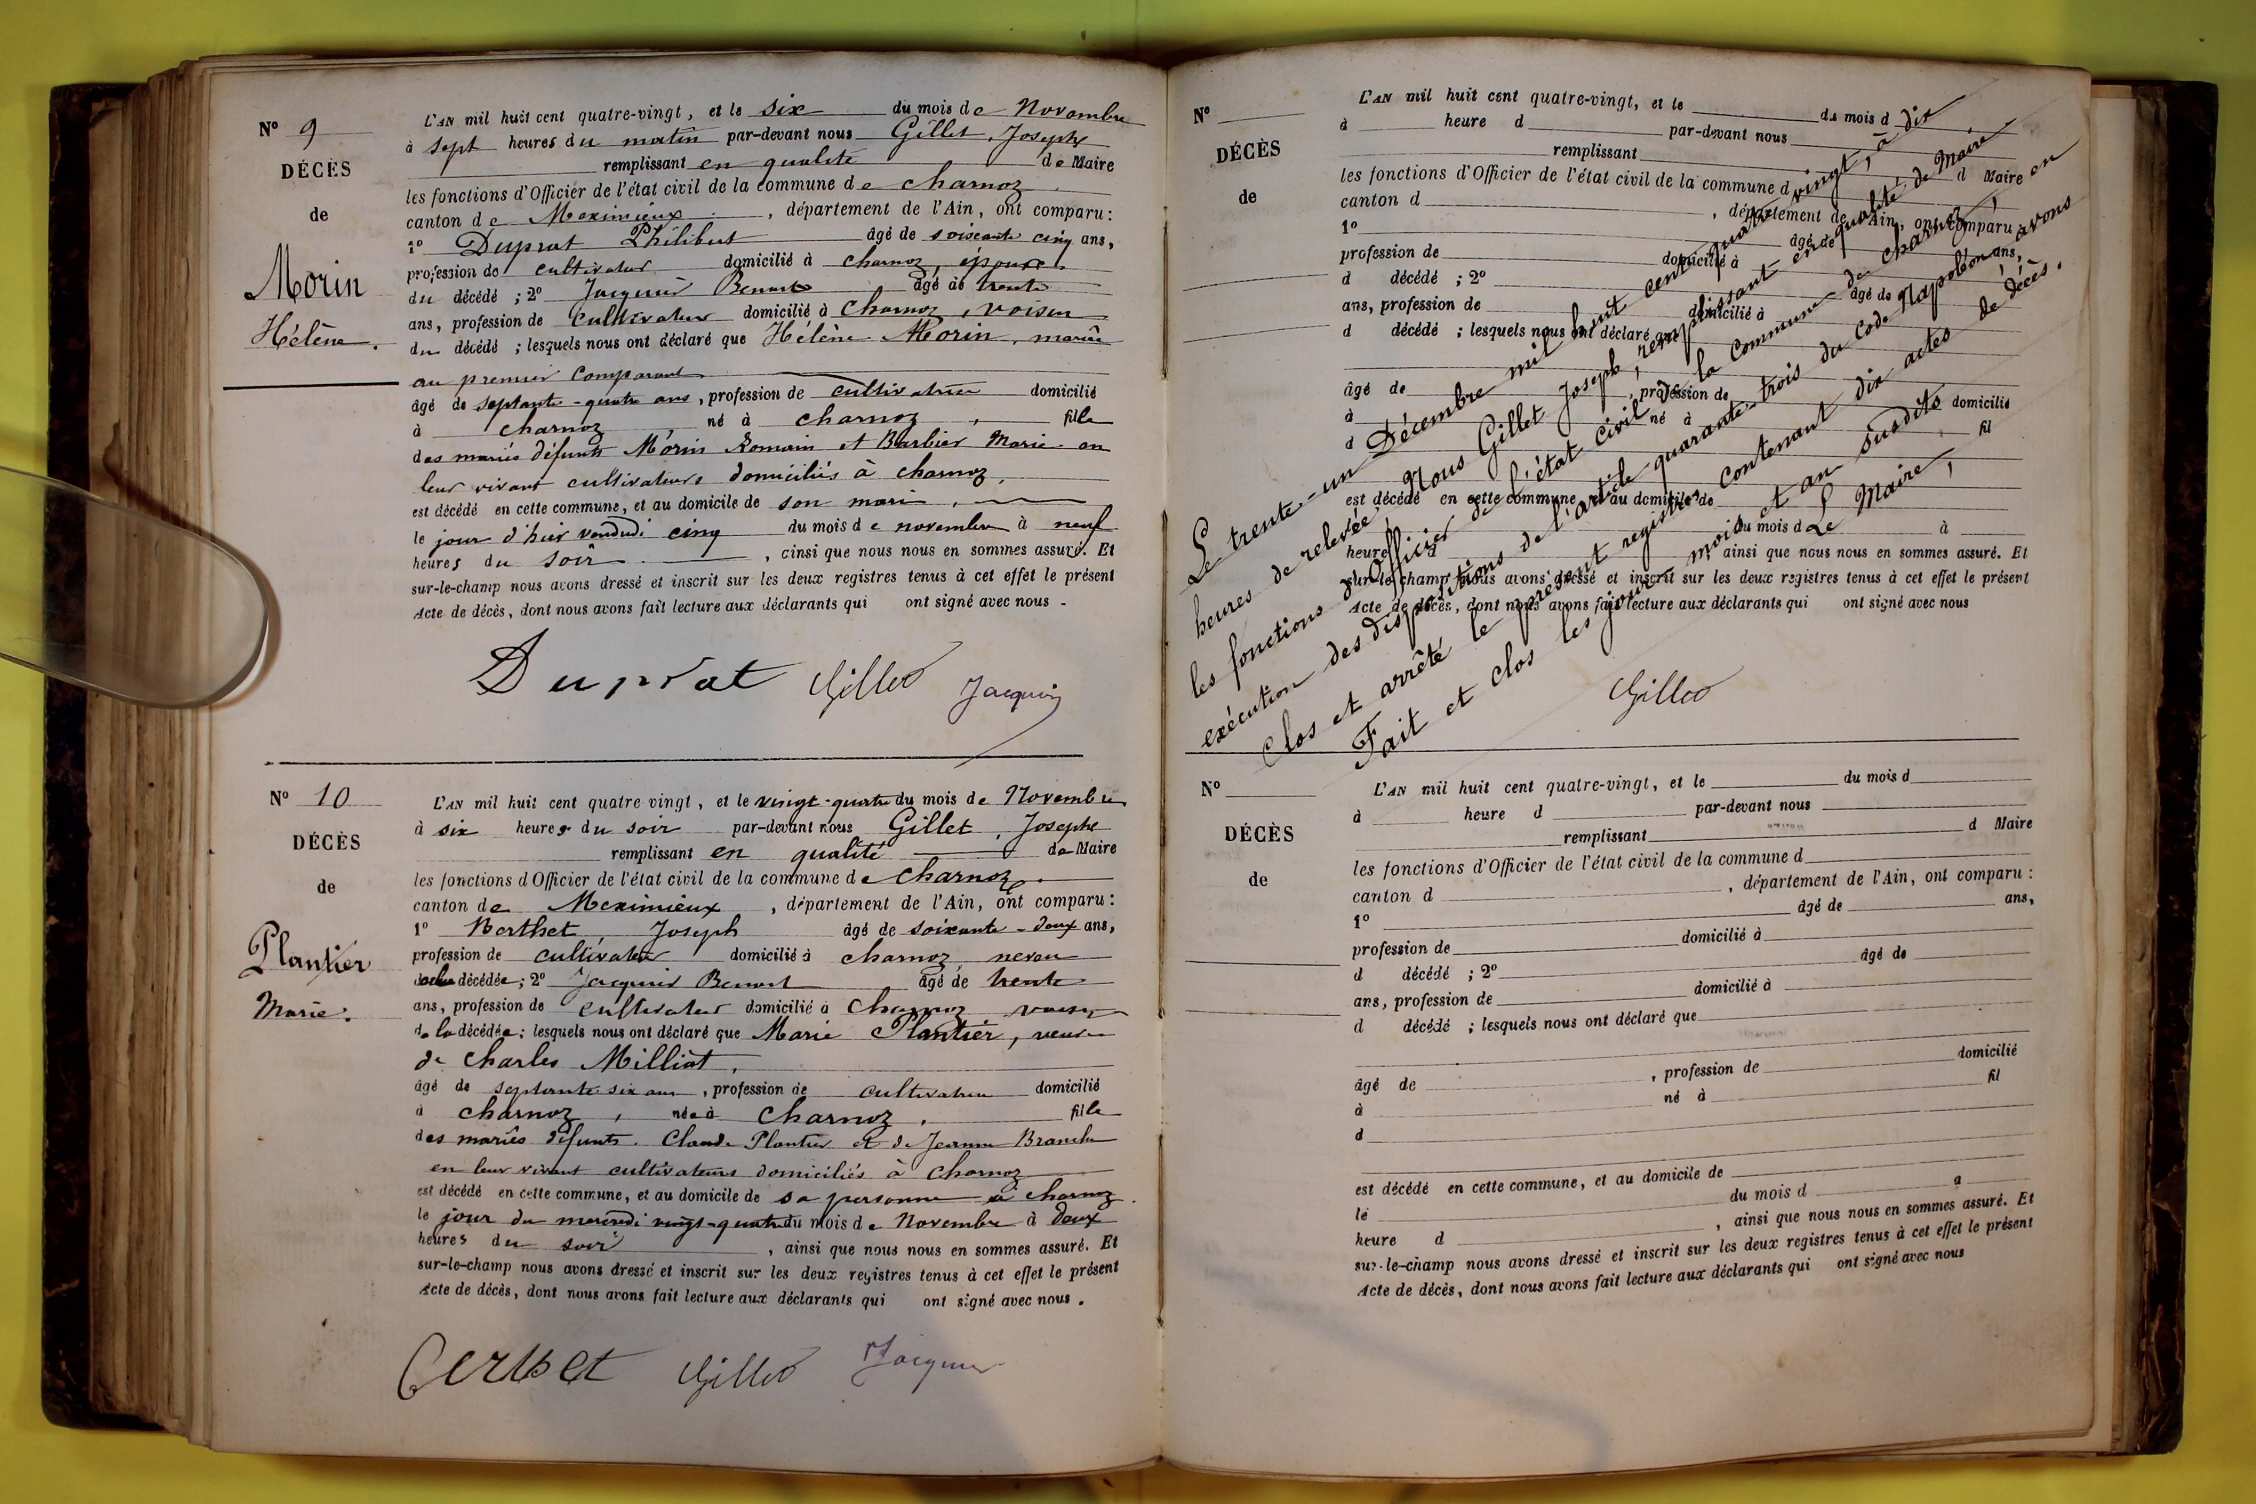 N° 9
DÉCÈS
de
Morin
Hélène.
L'AN mil huit cent quatre-vingt, et le six du mois de Novembre
à sept heures du matin par-devant nous Gillet, Joseph
remplissant en qualité de Maire
les fonctions d'Officier de l'état civil de la commune de Charnoz
canton de Meximieux, département de l'Ain, ont comparu:
1° Duprat Philibert âgé de soixante cinq ans,
profession de cultivateur domicilié à Charnoz, époux
du décédé; 2° Jacquin Benoit âgé de trente
ans, profession de cultivateur domicilié à Charnoz, voisin
du décédé; lesquels nous ont déclaré que Hélène Morin, mariée
au premier Comparant
âgé de septante-quatre ans, profession de cultivatrice domicilié
à Charnoz, né à Charnoz, fille
des mariés défunts Morin Romain et Barbier Marie en
leur vivant cultivateurs domiciliés à Charnoz,
est décédé en cette commune, et au domicile de son mari,
le jour d'hier vendredi cinq du mois de novembre à neuf
heures du soir, ainsi que nous nous en sommes assuré. Et
sur-le-champ nous avons dressé et inscrit sur les deux registres tenus à cet effet le présent
Acte de décès, dont nous avons fait lecture aux déclarants qui ont signé avec nous.
Duprat Gillet Jacquin
N° 10
DÉCÈS
de
Plantier
Marie.
L'AN mil huit cent quatre vingt, et le vingt-quatre du mois de Novembre
à six heures du soir par-devant nous Gillet, Joseph
remplissant en qualité de Maire
les fonctions d'Officier de l'état civil de la commune de Charnoz.
canton de Meximieux, département de l'Ain, ont comparu:
1° Berthet, Joseph âgé de soixante-deux ans,
profession de cultivateur domicilié à Charnoz, neveu
de la décédée; 2° Jacquin Benoit âgé de trente
ans, profession de cultivateur domicilié à Charnoz, voisin
de la décédée; lesquels nous ont déclaré que Marie Plantier, veuve
de Charles Milliat,
âgé de septante six ans, profession de cultivatrice domicilié
à Charnoz, née à Charnoz, fille
des mariés défunts. Claude Plantier et de Jeanne Branche
en leur vivant cultivateurs domiciliés à Charnoz
est décédé en cette commune, et au domicile de sa personne à Charnoz.
le jour du mercredi vingt-quatre du mois de Novembre à deux
heures du soir, ainsi que nous nous en sommes assuré. Et
sur-le-champ nous avons dressé et inscrit sur les deux registres tenus à cet effet le présent
Acte de décès, dont nous avons fait lecture aux déclarants qui ont signé avec nous.
Berthet Gillet Jacquin
N°
DÉCÈS
de
L'AN mil huit cent quatre-vingt, et le du mois d
à heure d par-devant nous
remplissant d Maire
les fonctions d'Officier de l'état civil de la commune d
canton d, département de l'Ain, ont comparu
1° âgé de ans,
profession de domicilié à
d décédé; 2° âgé de
ans, profession de domicilié à
d décédé; lesquels nous ont déclaré que
âgé de, profession de domicilié
à né à fil
d
est décédé en cette commune, et au domicile de
le du mois d à
heure d, ainsi que nous nous en sommes assuré. Et
sur-le-champ nous avons dressé et inscrit sur les deux registres tenus à cet effet le présent
Acte de décès, dont nous avons fait lecture aux déclarants qui ont signé avec nous
Le trente-un Décembre mil huit cent quatre vingt, à dix
heures de relevée, Nous Gillet Joseph, remplissant en qualité de Maire
les fonctions d'Officier de l'état civil de la commune de Charnoz, en
exécution des dispositions de l'article quarante-trois du Code Napoléon avons
Clos et arrêté le présent registre contenant dix actes de décès.
Fait et clos les jour, mois et an susdits
Le Maire,
Gillet
N°
DÉCÈS
de
L'AN mil huit cent quatre-vingt, et le du mois d
à heure d par-devant nous
remplissant d Maire
les fonctions d'Officier de l'état civil de la commune d
canton d, département de l'Ain, ont comparu:
1° âgé de ans,
profession de domicilié à
d décédé; 2° âgé de
ans, profession de domicilié à
d décédé; lesquels nous ont déclaré que
âgé de, profession de domicilié
à né à fil
d
est décédé en cette commune, et au domicile de
le du mois d a
heure d, ainsi que nous nous en sommes assuré. Et
sur-le-champ nous avons dressé et inscrit sur les deux registres tenus à cet effet le présent
Acte de décès, dont nous avons fait lecture aux déclarants qui ont signé avec nous